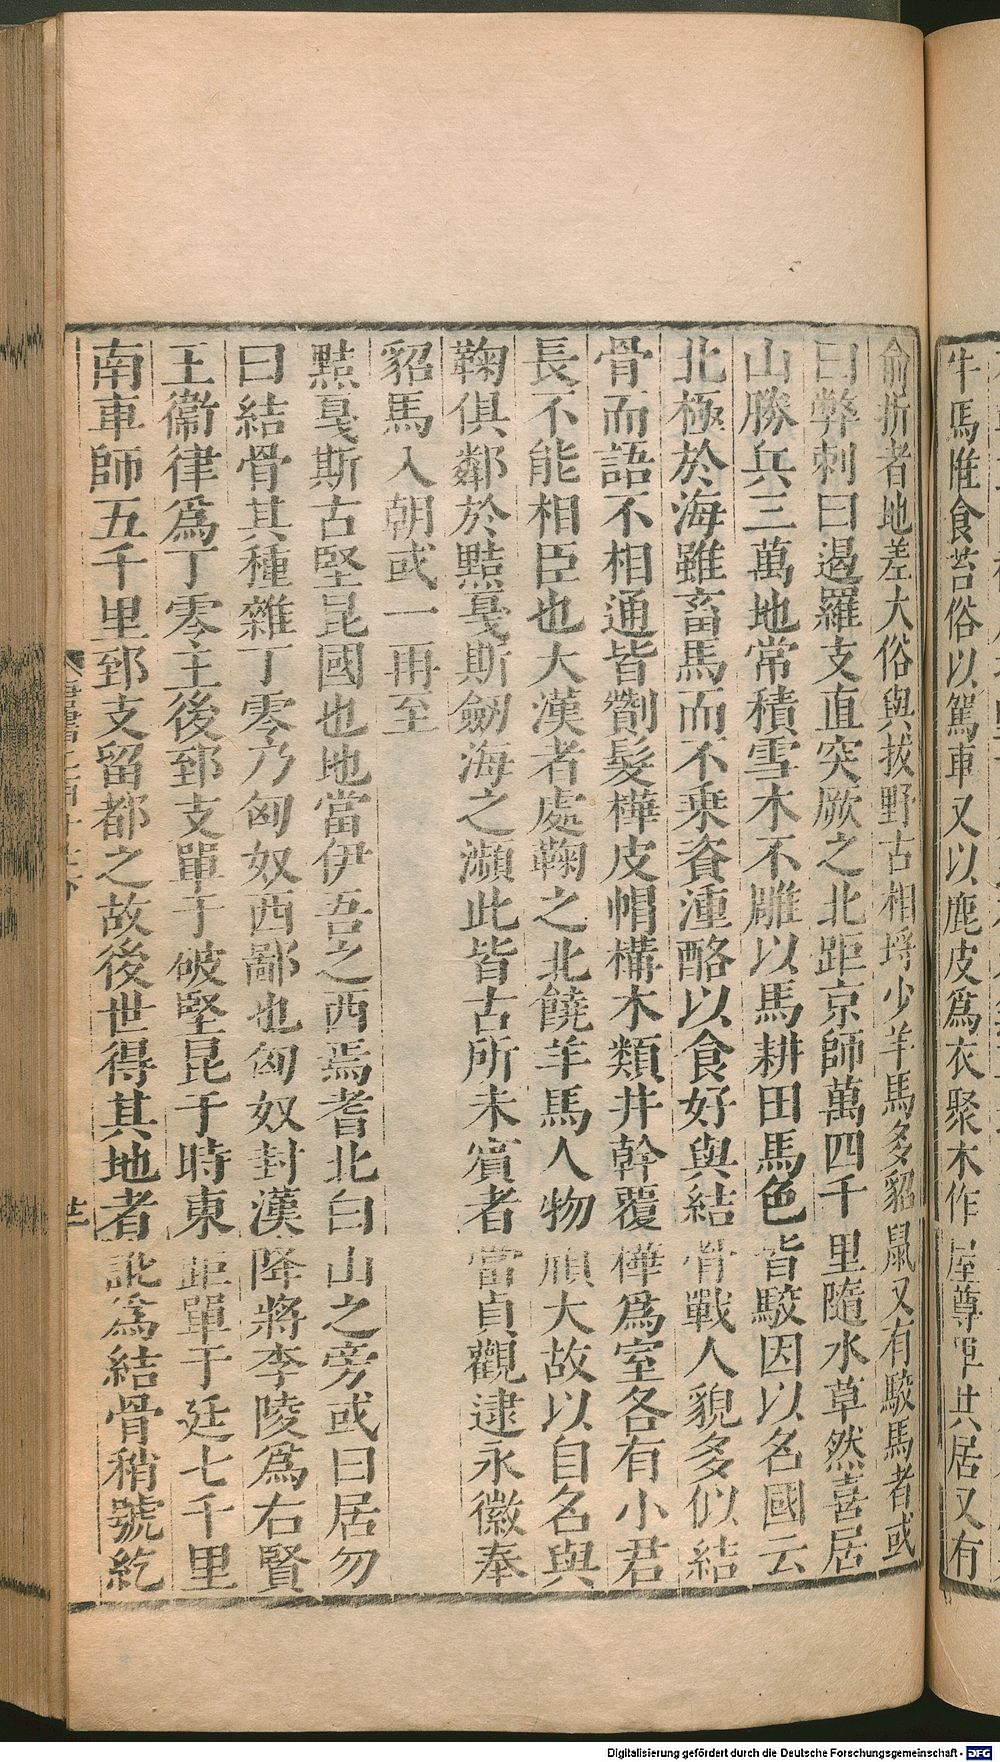 牛馬惟食苔俗以駕車又以鹿皮爲衣聚木作屋尊卑共居又有
俞折者地差大俗與拔野古相埒少羊馬多貂鼠又有駮馬者或
曰弊刺曰遏羅支直突厥之北距京師萬四千里隨水草然喜居
山勝兵三萬地常積雪木不雕以馬耕田馬色皆駮因以名國云
北極於海雖畜馬而不乗資湩酪以食好與結骨戰人貌多似結
骨而語不相通皆劗髮樺皮帽構木類井幹覆樺爲室各有小君
長不能相臣也大漢者處鞠之北饒羊馬人物頎大故以自名與
鞠俱鄰於黠戛斯劒海之瀕此皆古所未賓者當貞觀逮永徽奉
貂馬入朝或一再至
黠戛斯古堅昆國也地當伊吾之西焉耆北白山之旁或曰居勿
曰結骨其種雜丁零乃匈奴西鄙也匈奴封漢降將李陵爲右賢
王衞律爲丁零王後郅支單于破堅昆于時東距單于廷七千里
南車師五千里郅支留都之故後世得其地者訛爲結骨稍號紇
唐書二百十七下
廿一
Digitalisierung gefördert durch die Deutsche Forschungsgemeinschaft - DFG